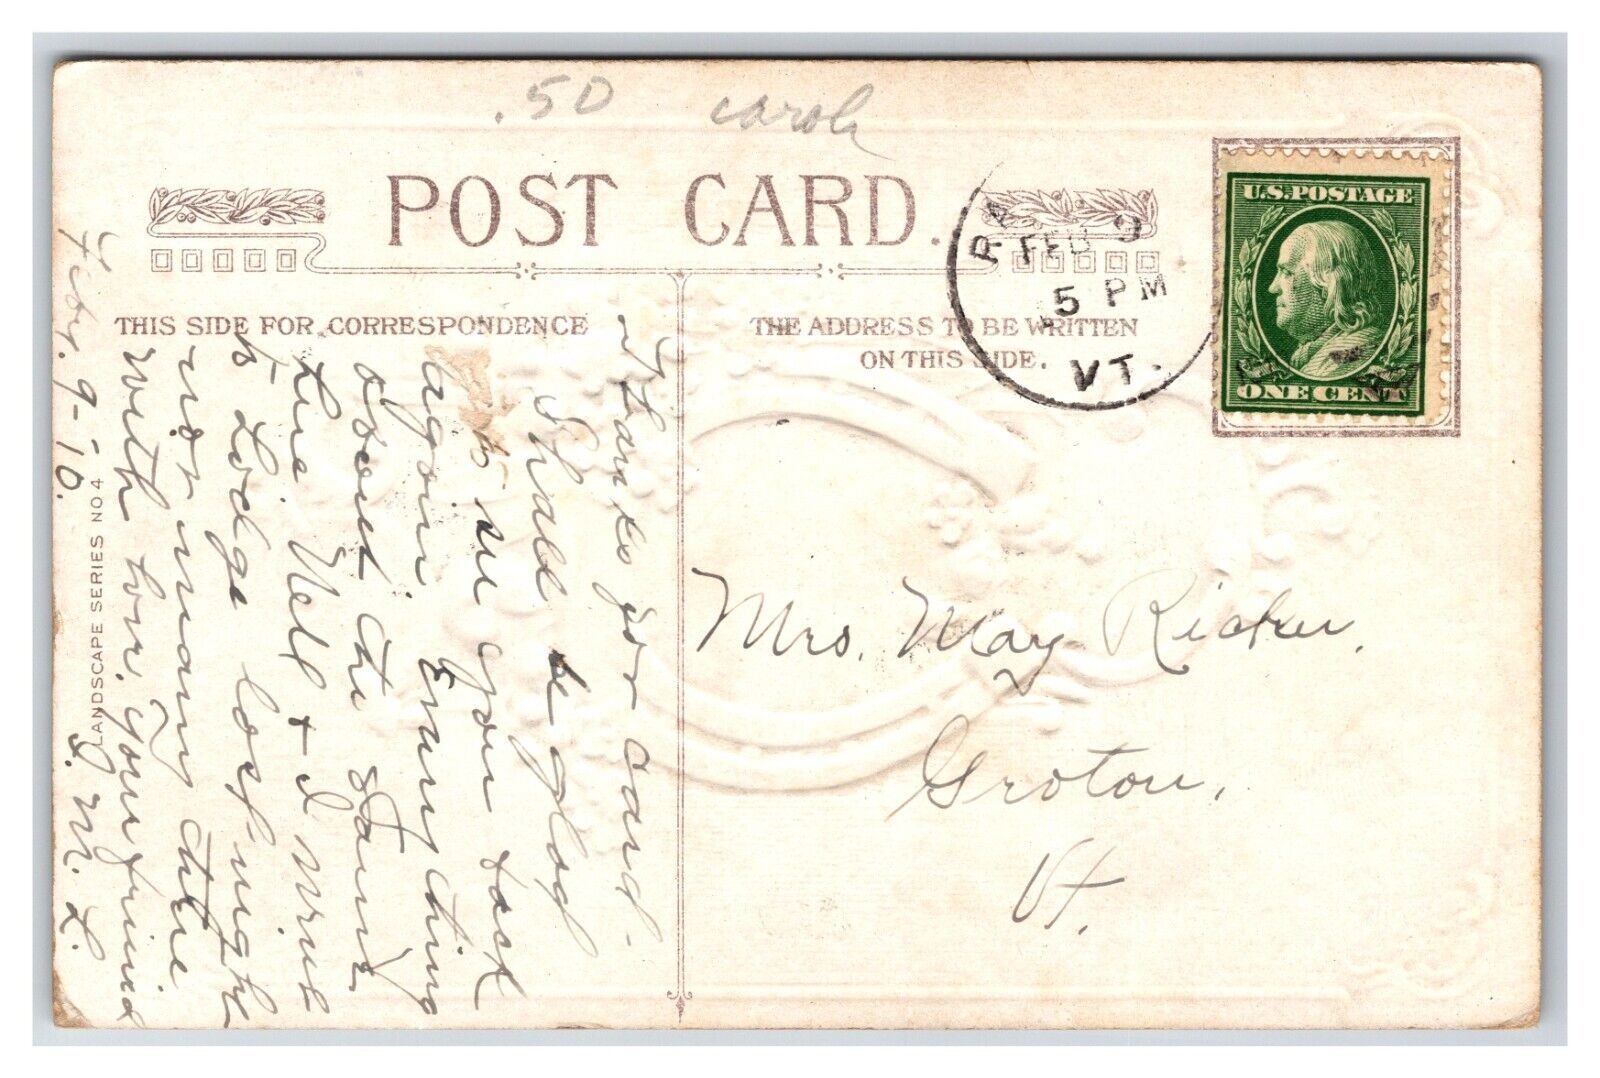 .50 Carol
POST CARD.
THIS SIDE FOR CORRESPONDENCE
THE ADDRESS TO BE WRITTEN
ON THIS SIDE.
RA
FEB 9
5 PM
VT.
U.S. POSTAGE
ONE CENT
Thanks for card.
Shall be glad
to see you back
again Everything
about the same,
Nell & I
to Lodge last night
not many there
with love, your friend
J. M. L.
Feby. 9-10.
LANDSCAPE SERIES NO 4
Mrs. May Ricker.
Groton,
Vt.